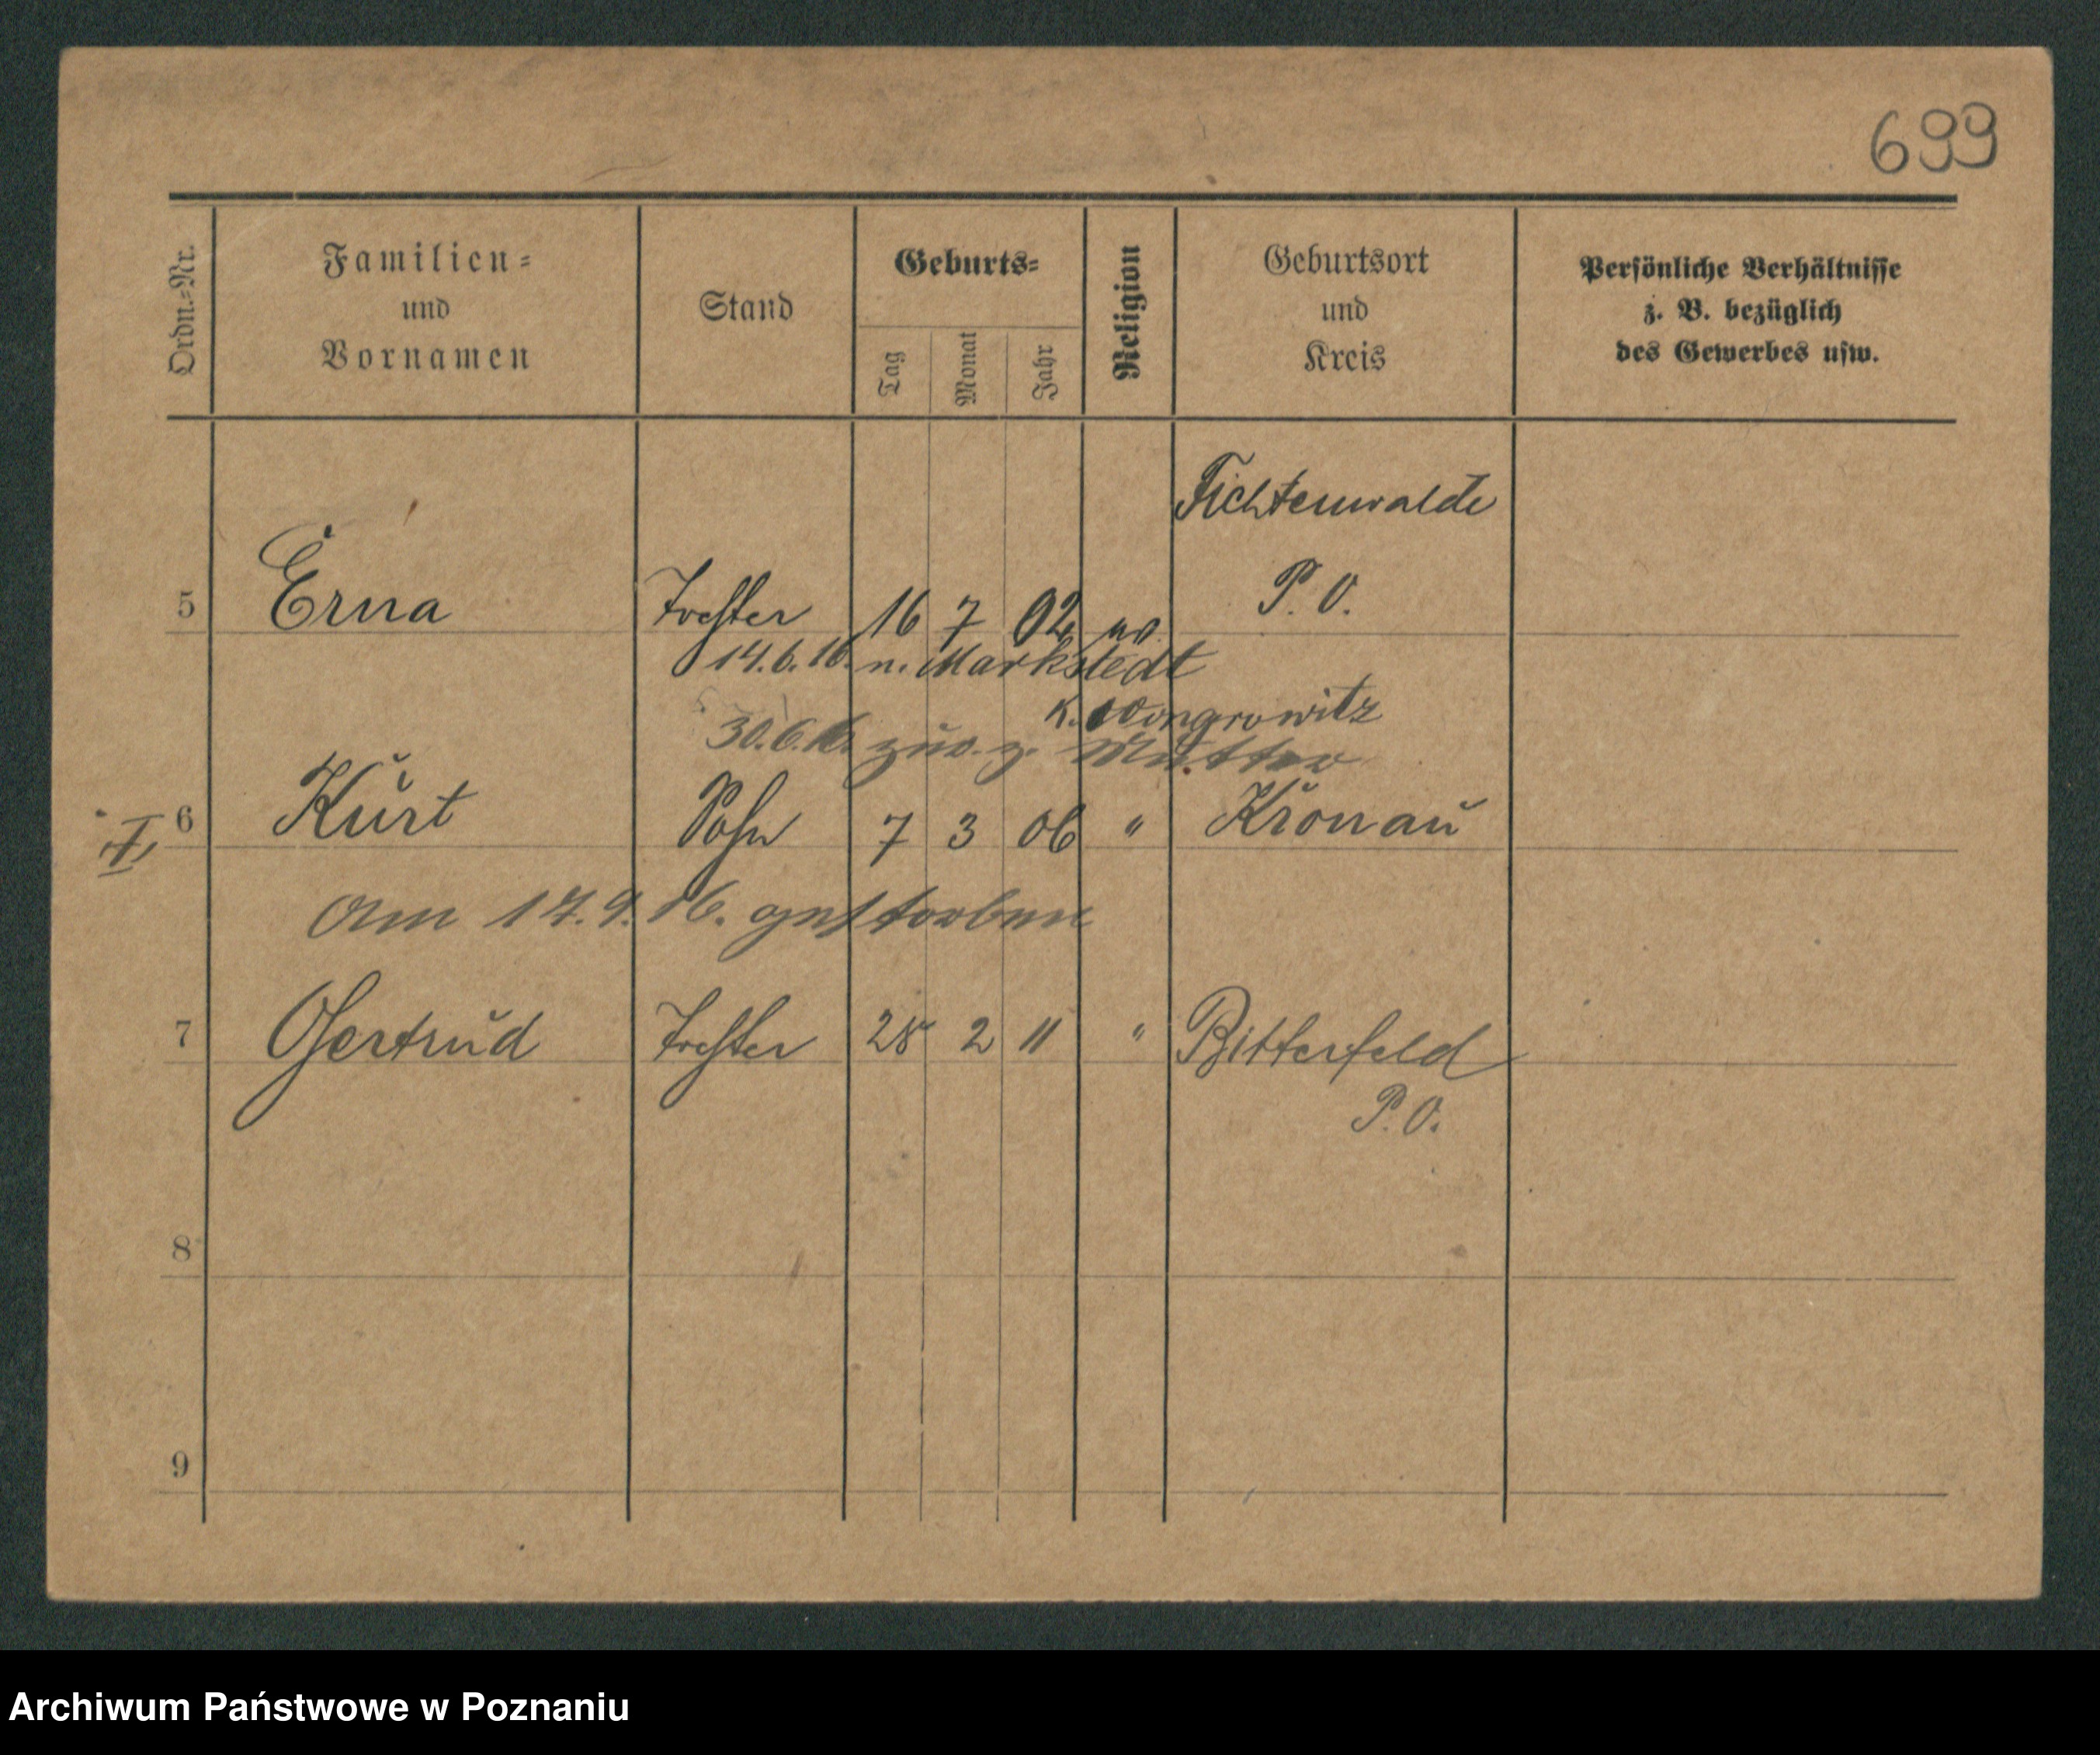 699
Ordn.-Nr.
Familien-
und
Vornamen
Stand
Geburts-
Tag
Monat
Jahr
Religion
Geburtsort
und
Kreis
Persönliche Verhältnisse
z. B. bezüglich
des Gewerbes usw.
Fichtenwalde
5 Erna Tochter 16 7 02 ev. P. O.
14.6.16. n. Markstedt
K. Wongrowitz
30.6.16. zur. z. Mutter
6 Kurt Sohn 7 3 06 " Kronau
I
am 17.9.16. gestorben
7 Gertrud Tochter 28 2 11 " Bitterfeld
P. O.
8
9
Archiwum Państwowe w Poznaniu